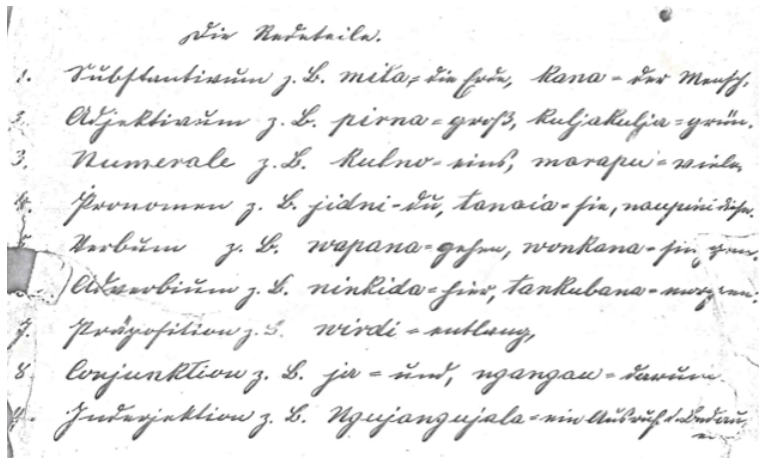 Die Redeteile.
1. Substantivum z. B. mita = die Erde, kana = der Mensch.
2. Adjektivum z. B. pirna = groß, kuljakulja = grün.
3. Numerale z. B. kulno = eins, marapu = viele,
4. Pronomen z. B. jidni = du, tanaia = sie,
5. Verbum z. B. wapana = gehen, wonkana = singen.
Adverbium z. B. ninkida = hier, tankubana = morgen.
7. Präposition z. B. wirdi = entlang,
8. Conjunktion z. B. ja = und, ngangau = darum.
9. Inderjektion z. B. Ngujangujala = ein Ausruf d.